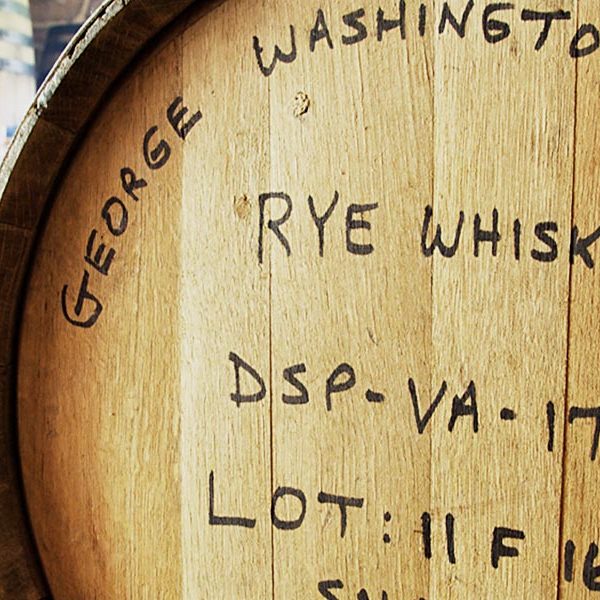 GEORGE WASHINGTO
RYE WHISK
DSP-VA-17
LOT: 11 F 16